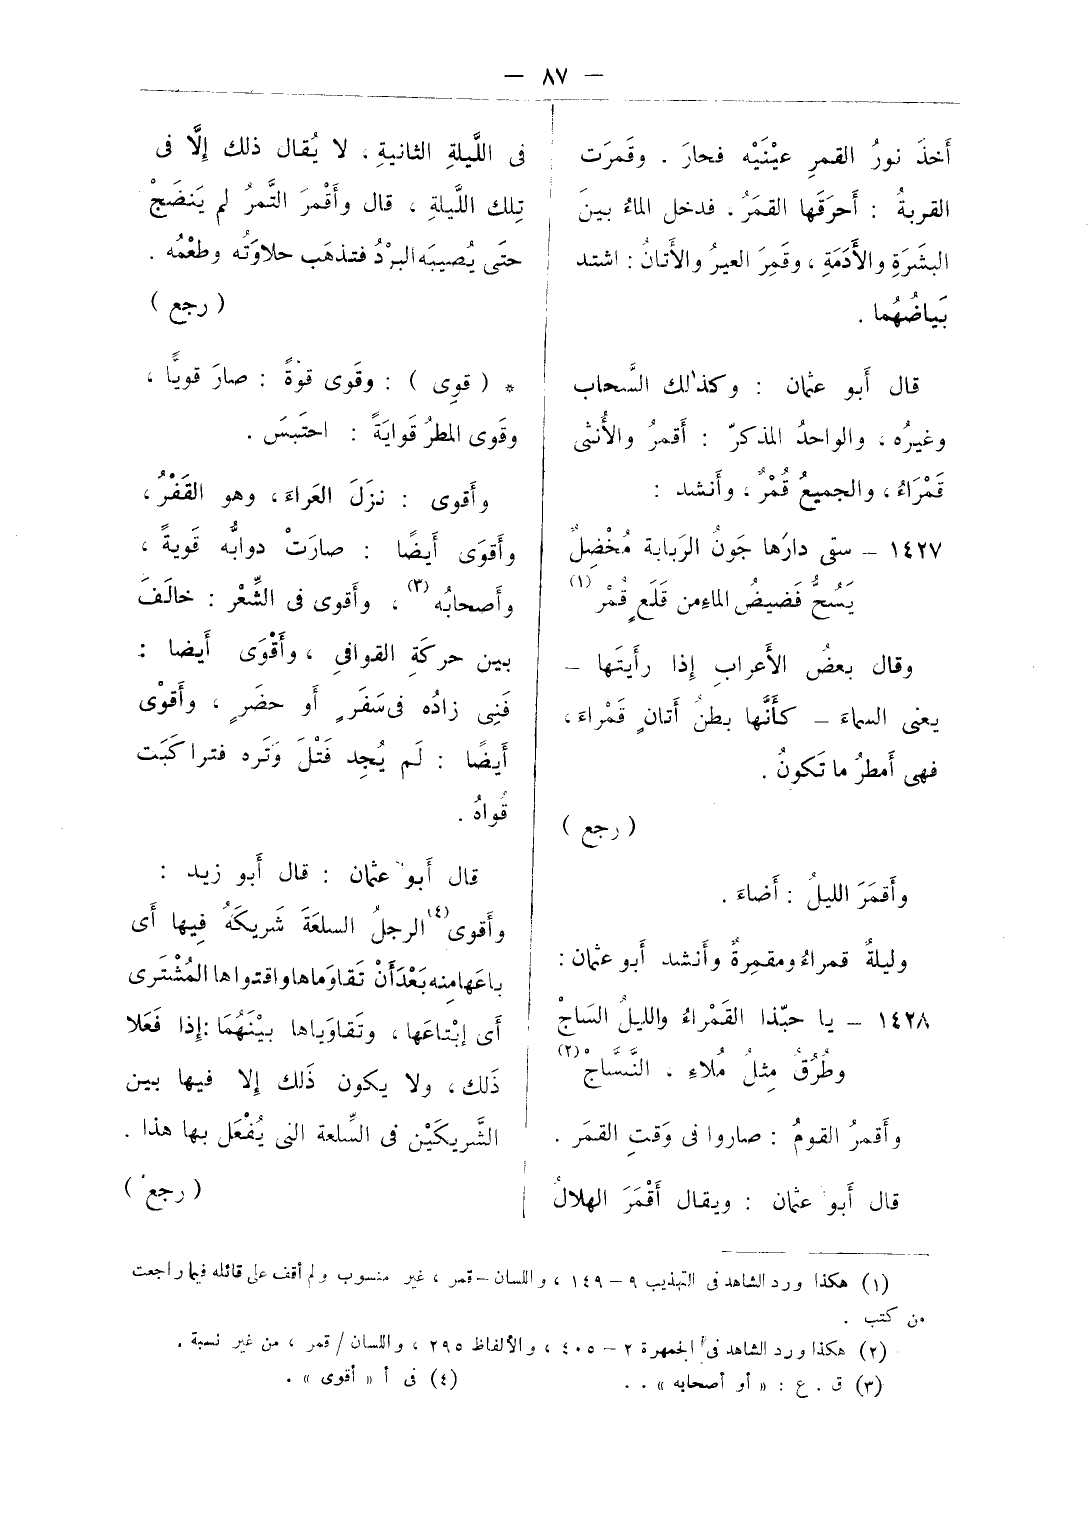 — ٨٧ —
أَخذَ نورُ القمرِ عيْنَيْه فحارَ . وقَمرَت
القربةُ : أَحرَقَها القمَرُ ، فدخل الماءُ بينَ
البشَرَةِ والأَدَمَةِ ، وقَمِرَ العيرُ والأَتانُ : اشتد
بَياضُهُما .
قال أَبو عثمان : وكذلك السَّحاب
وغيرُه ، والواحدُ المذكرّ : أَقمرُ والأُنثى
قَمْرَاءُ ، والجميعُ قُمْرٌ ، وأَنشد :
١٤٢٧ – سقى دارَها جَونُ الرَبابة مُخْضِلٌ
يَسُحُّ فَضيضُ الماءِ من قَلَعٍ قُمْر (١)
وقال بعضُ الأَعرابِ إذا رأَيتَها –
يعنى السماءَ – كأَنَّها بطنُ أَتانٍ قَمْراءَ ،
فهى أَمطرُ ما تَكونُ .
( رجع )
وأَقمَرَ الليلُ : أَضاءَ .
وليلةٌ قمراءُ ومقمِرةٌ وأَنشد أَبو عثمان :
١٤٢٨ – يا حبّذا القَمْراءُ والليلُ السَاجْ
وطُرُقٌ مِثلُ مُلاءِ ، النَّسَّاجْ (٢)
وأَقمرُ القومُ : صاروا فى وَقتِ القمَر .
قال أَبو عثمان : ويقال أَقْمَرَ الهلالُ
فى اللَّيلةِ الثانيةِ ، لا يُقال ذلك إِلَّا فى
تِلك اللَّيلةِ ، قال وأَقْمرَ التَّمرُ لم يَنضَجْ
حتَى يُصيبَه البرْدُ فتذهَب حلاوَتُه وطعْمُه .
( رجع )
* ( قوِى ) : وقَوى قوْةً : صارَ قويًّا ،
وقَوى المطرُ قَوايَةً : احتَبسَ .
وأَقوى : نزَلَ العَراءَ ، وهو القَفْرُ ،
وأَقوَى أَيضًا : صارَتْ دوابُّه قَويةً ،
وأَصحابُه (٣) ، وأَقوى فى الشِّعْر : خالَفَ
بين حركَةِ القوافى ، وأَقْوَى أَيضا :
فَنِى زادُه فى سَفَرٍ أَو حضَرٍ ، وأَقوْى
أَيضًا : لَم يُجِد فَتْلَ وَتَره فتراكَبَت
قُواهُ .
قال أَبو عثمان : قال أَبو زيد :
وأَقوى (٤) الرجلُ السلعَةَ شَريكَهُ فِيها أَى
باعَها منه بَعْدَ أَنْ تَقاوَماها واقتواها المُشْتَرى
أَى إِبْتاعَها ، وتَقاوَياها بيْنَهُمَا : إِذا فَعَلا
ذَلك ، ولا يكون ذَلك إِلا فيها بين
الشَّريكَيْن فى السِّلعة التى يُفْعَل بها هذا .
( رجع )
(١) هكذا ورد الشاهد فى التهذيب ٩ – ١٤٩ ، واللسان – قمر ، غير منسوب ولم أقف على قائله فيما راجعت
من كتب .
(٢) هكذا ورد الشاهد فى الجمهرة ٢ – ٤٠٥ ، والألفاظ ٢٩٥ ، واللسان / قمر ، من غير نسبة .
(٣) ق . ع : « أو أصحابه » . . (٤) فى أ « أقوى » .